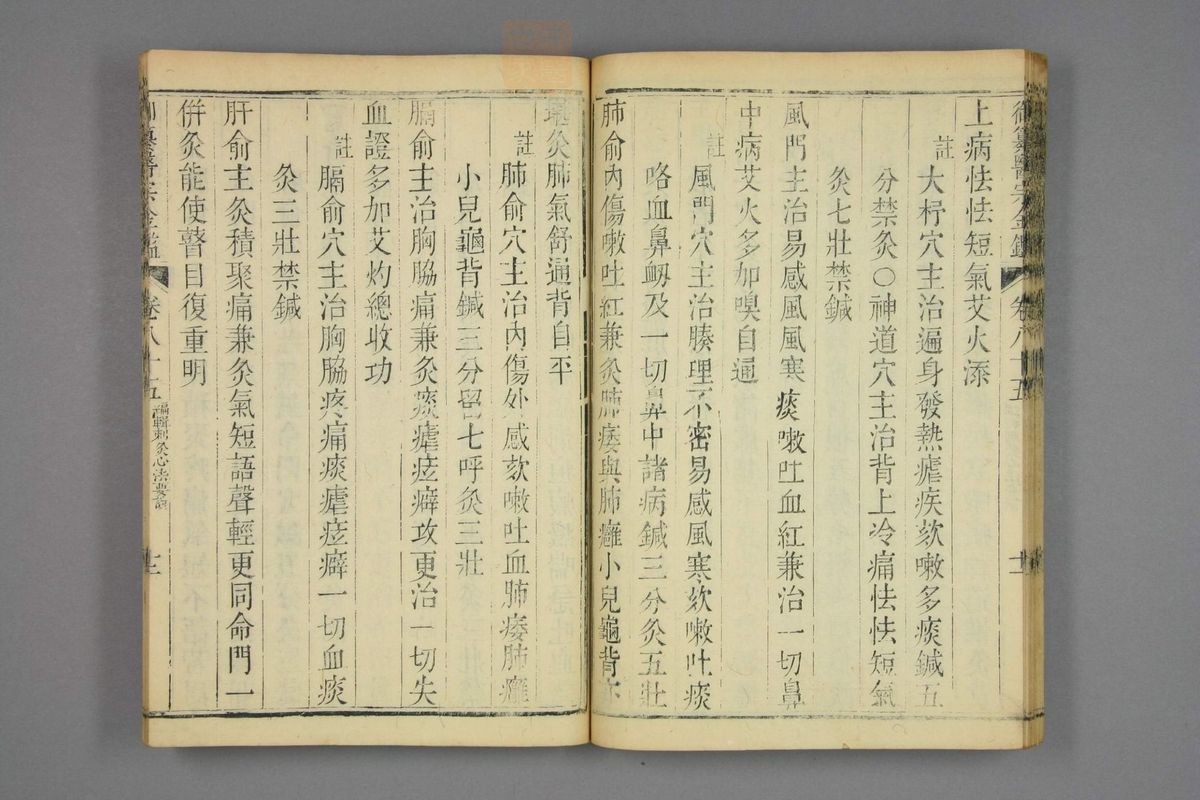 御纂醫宗金鑑 卷八十五 十二
上病怯怯短氣艾火添
註 大杼穴主治遍身發熱瘧疾欬嗽多痰鍼五
分禁灸○神道穴主治背上冷痛怯怯短氣
灸七壯禁鍼
風門主治易感風風寒痰嗽吐血紅兼治一切鼻
中病艾火多加嗅自通
註 風門穴主治腠理不密易感風寒欬嗽吐痰
咯血鼻衂及一切鼻中諸病鍼三分灸五壯
肺俞內傷嗽吐紅兼灸肺痿與肺癰小兒龜背亦
堪灸肺氣舒通背自平
註 肺俞穴主治內傷外感欬嗽吐血肺痿肺癰
小兒龜背鍼三分留七呼灸三壯
膈俞主治胸脇痛兼灸痰瘧痃癖攻更治一切失
血證多加艾灼總收功
註 膈俞穴主治胸脇疼痛痰瘧痃癖一切血痰
灸三壯禁鍼
肝俞主灸積聚痛兼灸氣短語聲輕更同命門一
併灸能使瞽目復重明
御纂醫宗金鑑 卷八十五 編輯刺灸心法要訣 十二